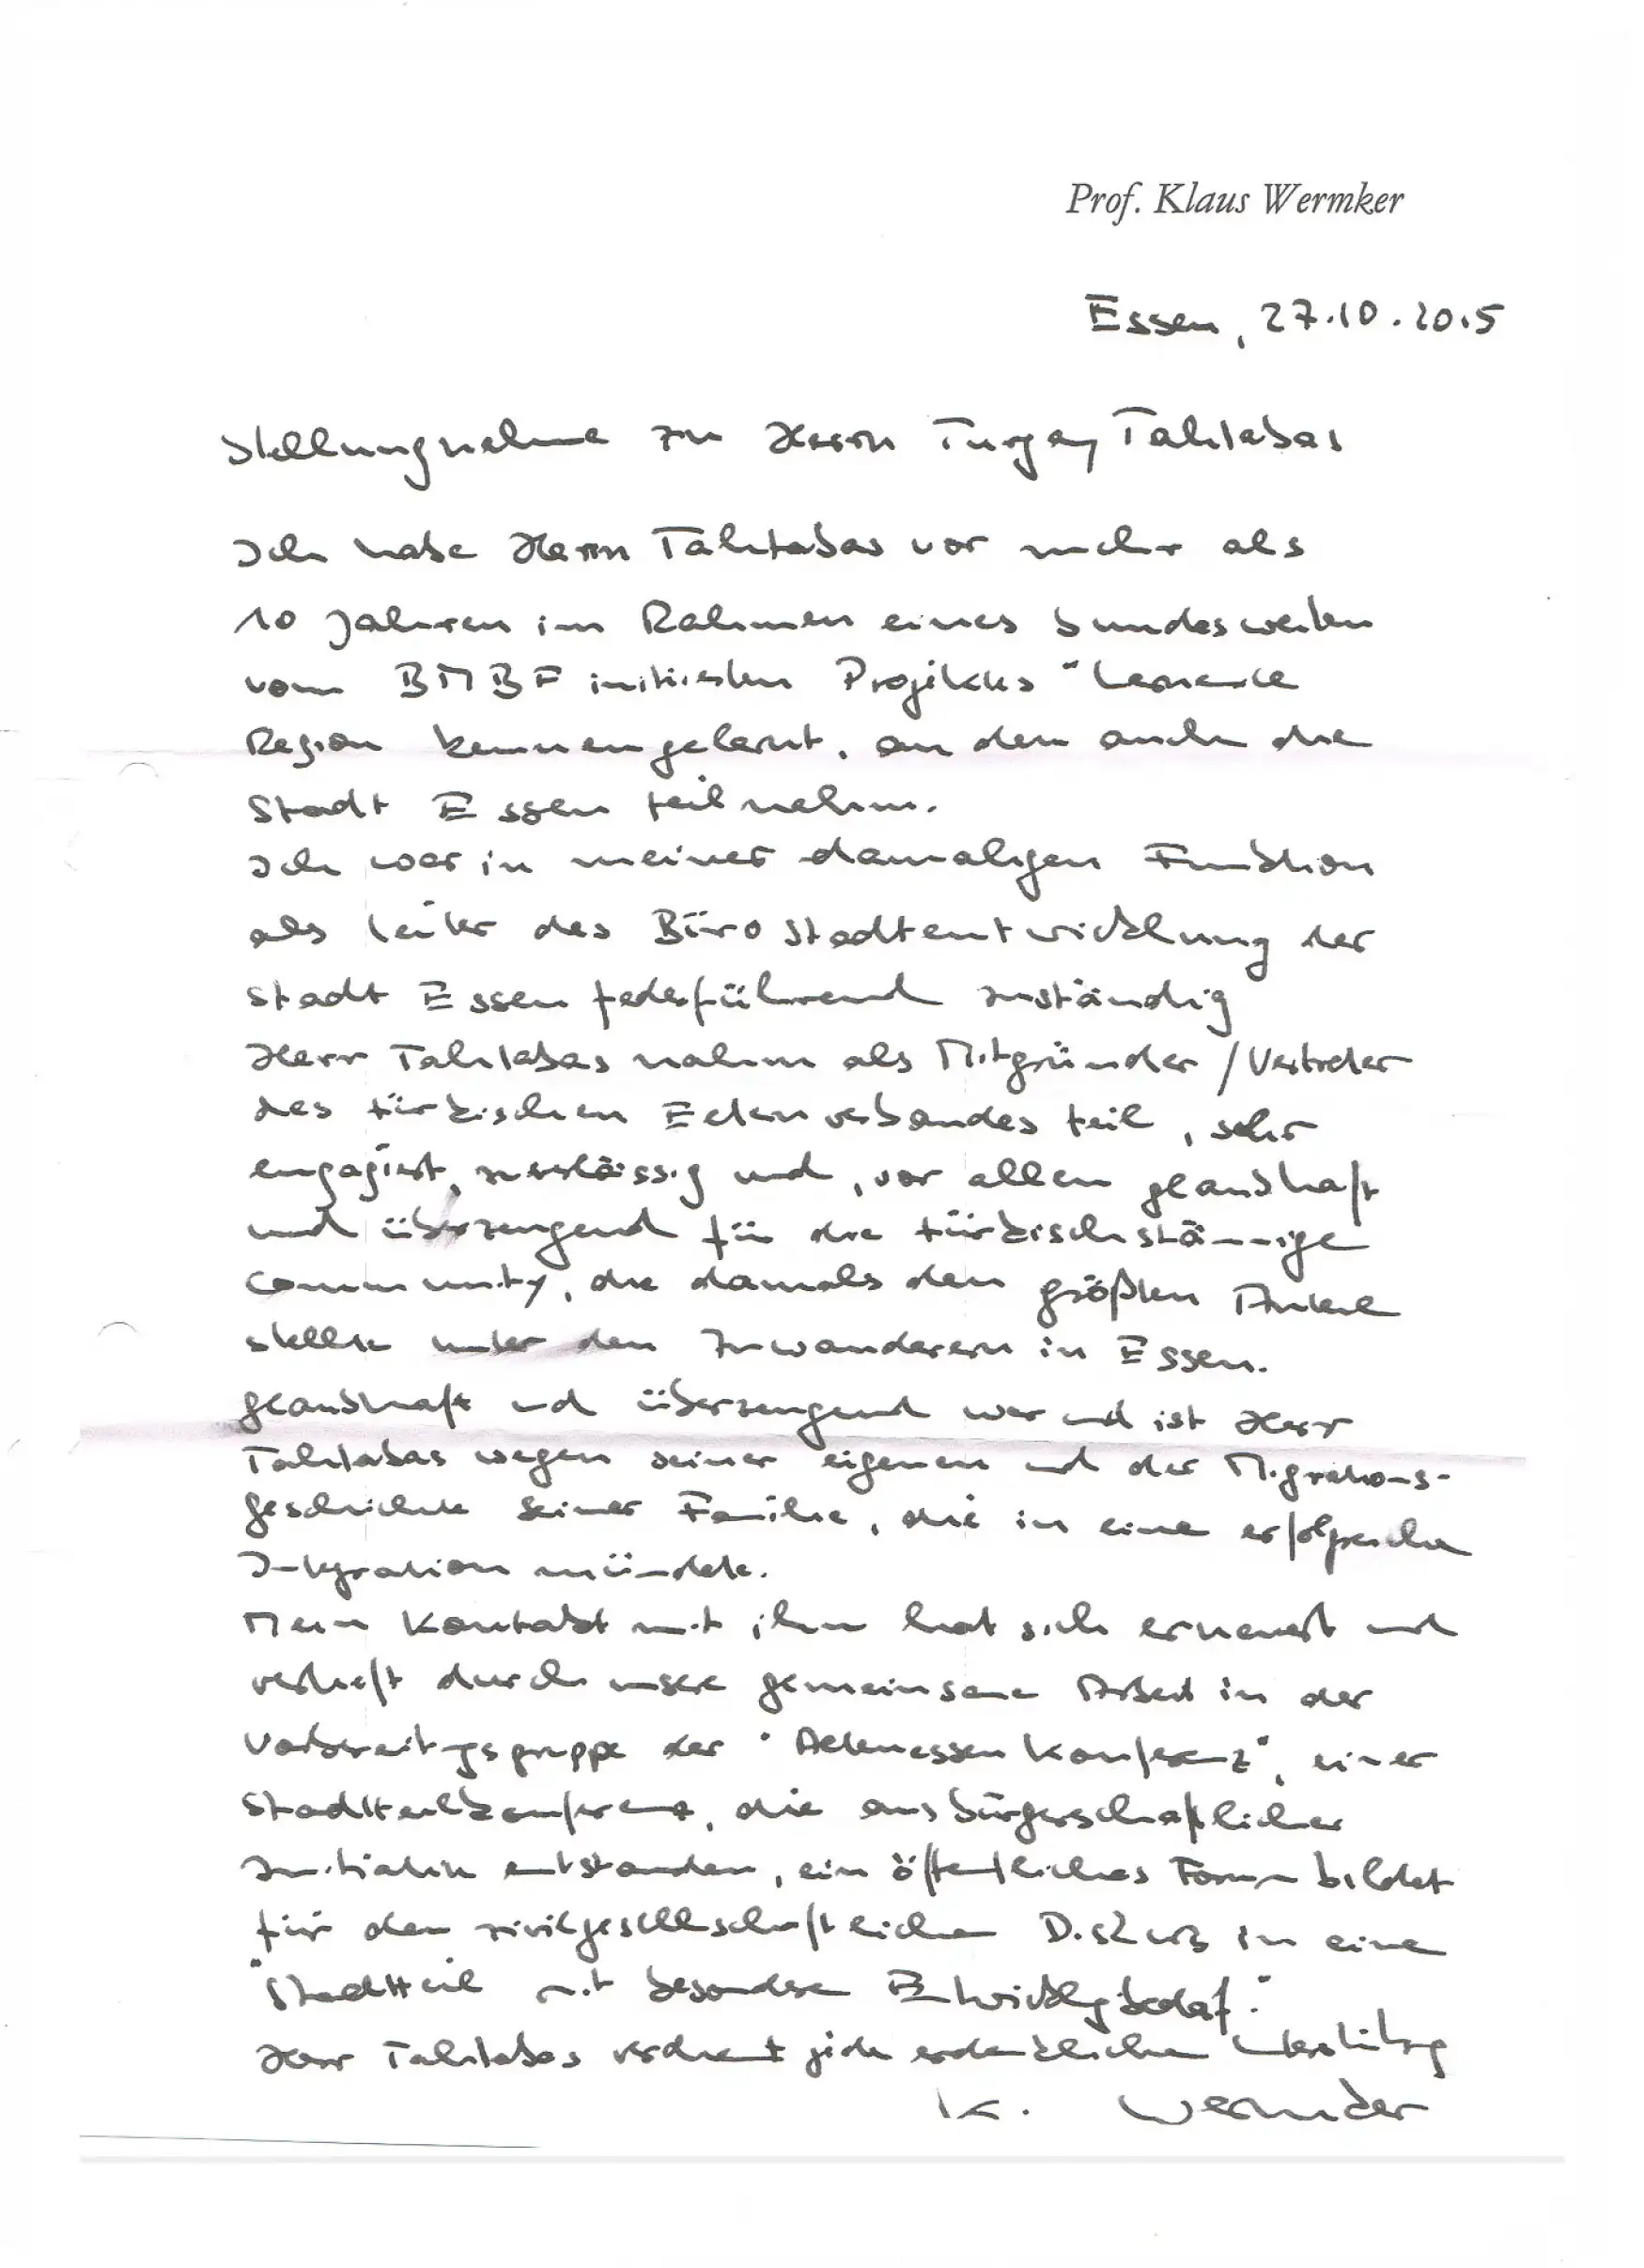 Prof. Klaus Wermker
Essen, 27.10.2015
Stellungnahme zu Herrn Turgay Tahtabas
Ich habe Herrn Tahtabas vor mehr als
10 Jahren im Rahmen eines bundesweiten
vom BMBF initiierten Projektes "Lernende
Region kennengelernt, an dem auch die
Stadt Essen teilnahm.
Ich war in meiner damaligen Funktion
als Leiter des Büro Stadtentwicklung der
Stadt Essen federführend zuständig
Herr Tahtabas nahm als Mitgründer / Vertreter
des türkischen Elternverbandes teil, sehr
engagiert, zuverlässig und, vor allem glaubhaft
und überzeugend für die türkischstämmige
Community, die damals den größten Anteil
stellte unter den Zuwanderern in Essen.
Glaubhaft und überzeugend war und ist Herr
Tahtabas wegen seiner eigenen und der Migrations-
geschichte seiner Familie, die in eine erfolgreiche
Integration mündete.
Mein Kontakt mit ihm hat sich erneuert und
vertieft durch unsere gemeinsame Arbeit in der
Vorbereitungsgruppe der "Altenessen Konferenz", einer
Stadtteilkonferenz, die aus bürgerschaftlicher
Initiative entstanden, ein öffentliches Forum bildet
für den zivilgesellschaftlichen Diskurs in einem
"Stadtteil mit besonderem Entwicklungsbedarf."
Herr Tahtabas verdient jede erdenkliche Unterstützung
K. Wermker